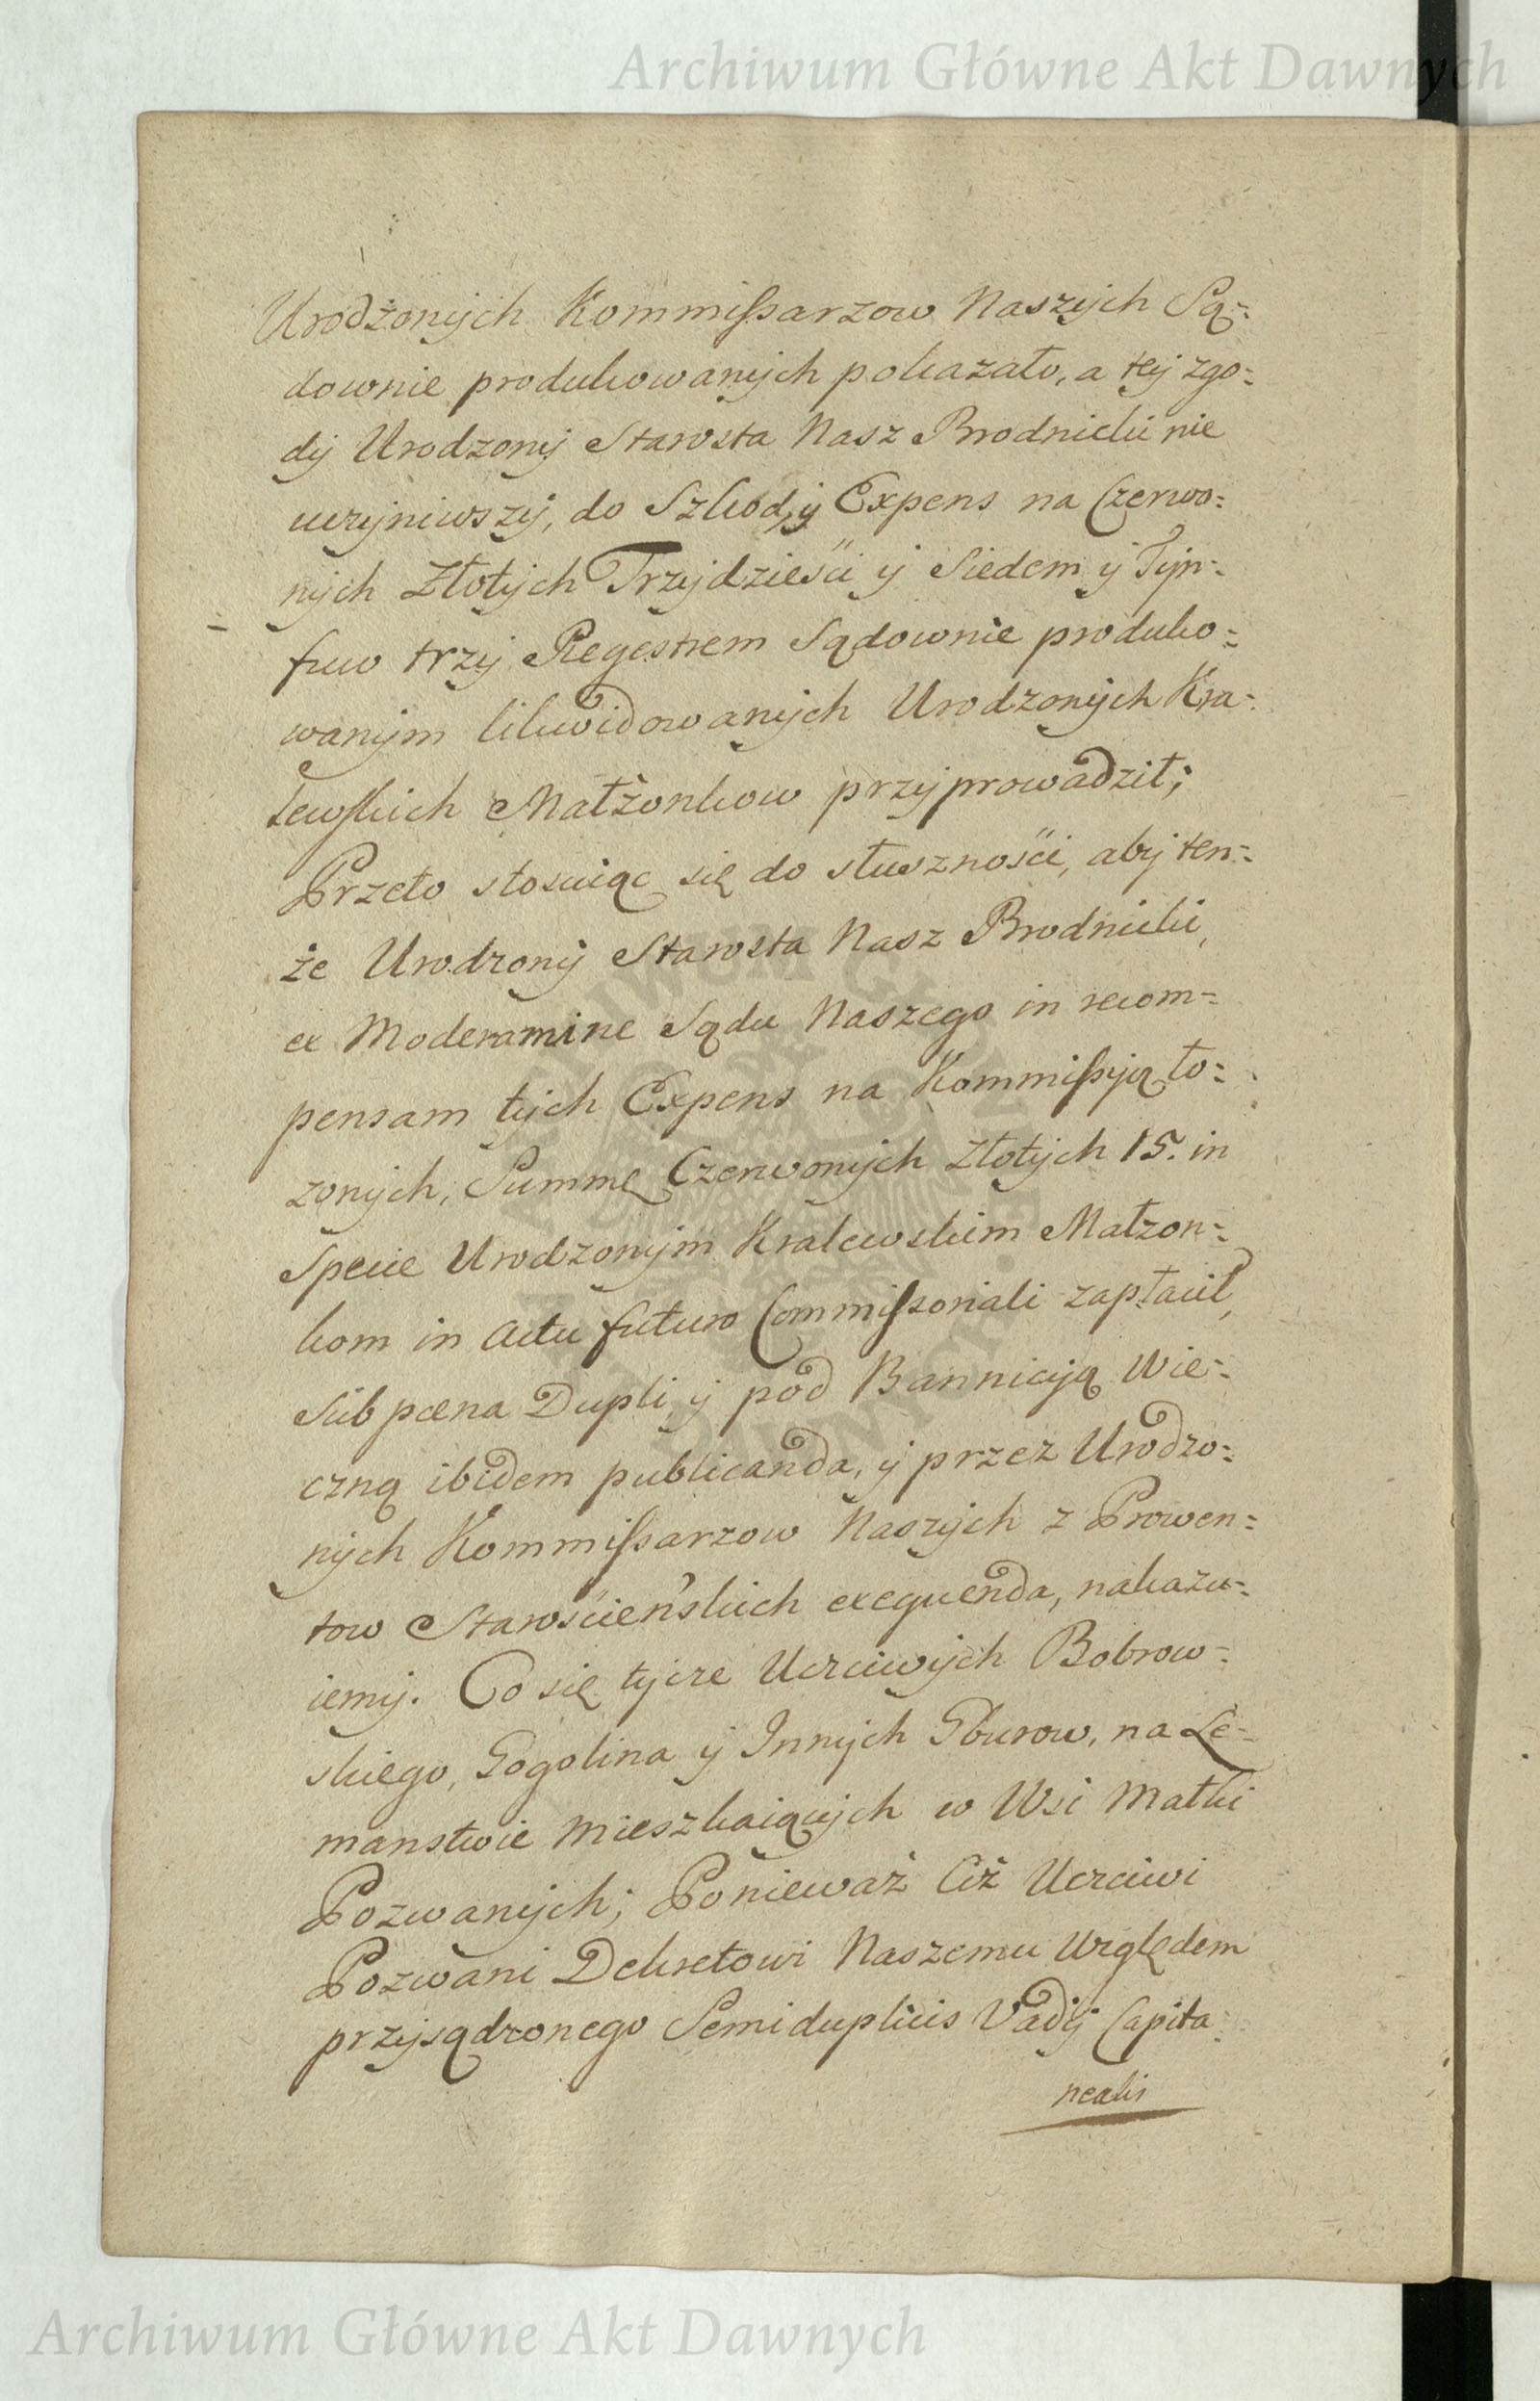 Archiwum Główne Akt Dawnych
Urodzonych Kommissarzow Naszych Są=
downie produkowanych pokazało, a tey zgo=
dy Urodzony Starosta Nasz Brodnicki nie
uczyniwszy, do Szkod, y Expens na Czerwo=
nych Złotych Trzydzieści y Siedem y Tyn=
fuw trzy Regestrem Sądownie produko=
wanym likwidowanych Urodzonych Kra=
lewskich Małżonkow przyprowadził;
Przeto stosuiąc się do słuszności, aby ten=
że Urodzony Starosta Nasz Brodnicki,
ex Moderamine Sądu Naszego in recom=
pensam tych Expens na Kommissyą ło=
zonych, Summę Czerwonych Złotych 15. in
Specie Urodzonym Kralewskim Małzon=
kom in Actu futuro Commissoriali zapłacił,
sub pœna Dupli, y pod Bannicyą Wie=
czną ibidem publicanda, y przez Urodzo=
nych Kommissarzow Naszych z Prowen=
tow Starościeńskich exequenda, nakazu=
iemy. Co się tycze Uczciwych Bobrow=
skiego, Gogolina y Innych Gburow, na Le=
manstwie Mieszkaiących w Wsi Małki
Pozwanych; Ponieważ Ciż Uczciwi
Pozwani Dekretowi Naszemu Względem
przysądzonego Semiduplicis Vadij Capita=
nealis
Archiwum Główne Akt Dawnych